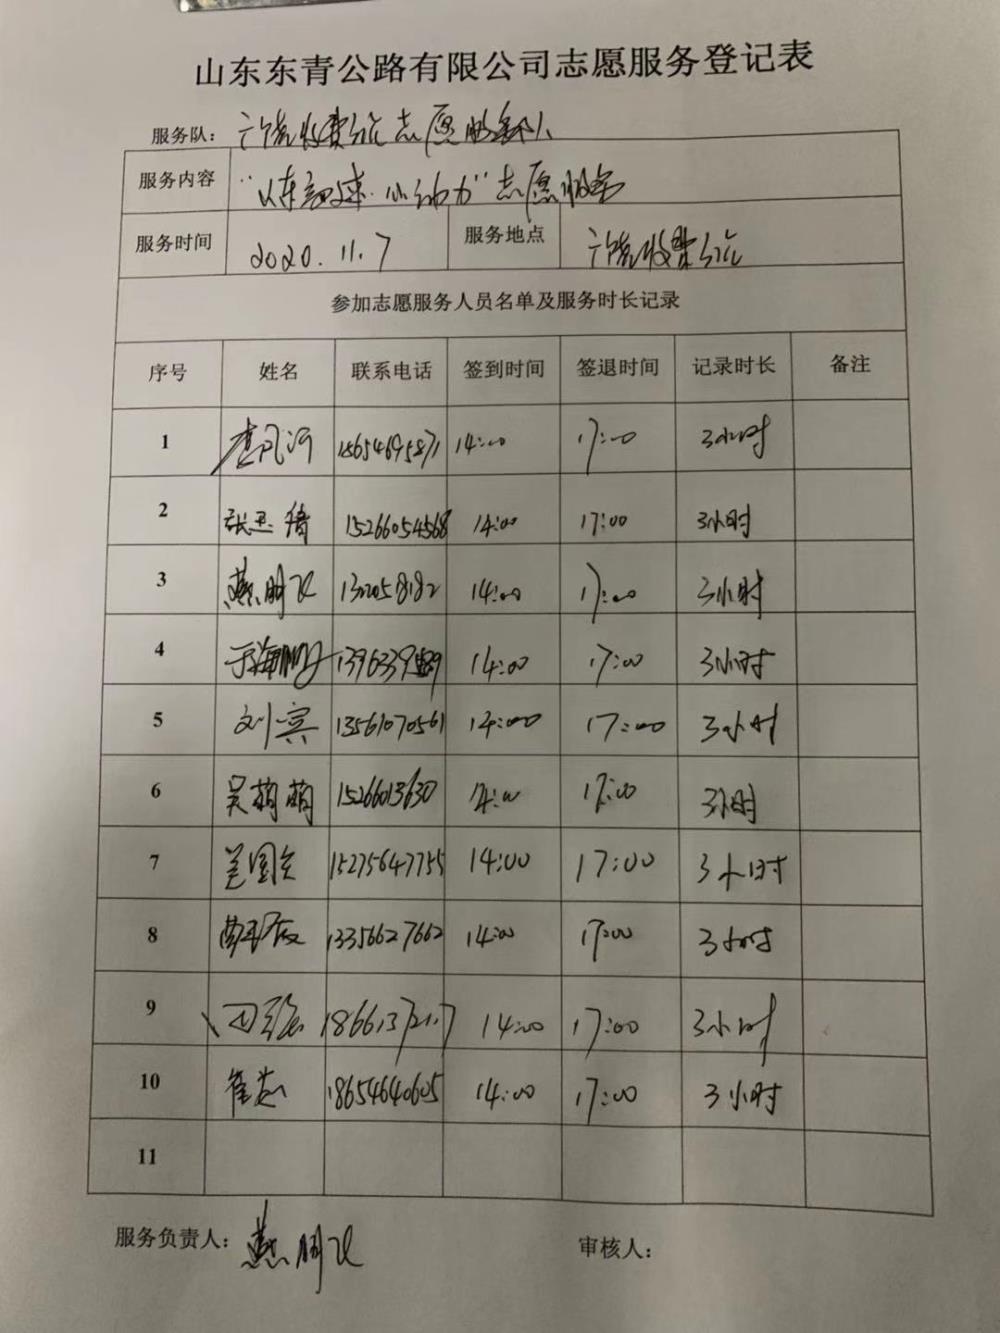 山东东青公路有限公司志愿服务登记表
服务队： 收费站志愿服务队
服务内容 志愿服务
服务时间 2020.11.7 服务地点 收费站
参加志愿服务人员名单及服务时长记录
序号 姓名 联系电话 签到时间 签退时间 记录时长 备注
1 14:00 17:00 3小时
2 15266054568 14:00 17:00 3小时
3 燕明飞 14:00 17:00 3小时
4 于海鹏 14:00 17:00 3小时
5 刘宾 13561070561 14:00 17:00 3小时
6 吴萌萌 15266013630 14:00 17:00 3小时
7 15275647755 14:00 17:00 3小时
8 13356627662 14:00 17:00 3小时
9 14:00 17:00 3小时
10 18654640605 14:00 17:00 3小时
11
服务负责人： 燕明飞 审核人：